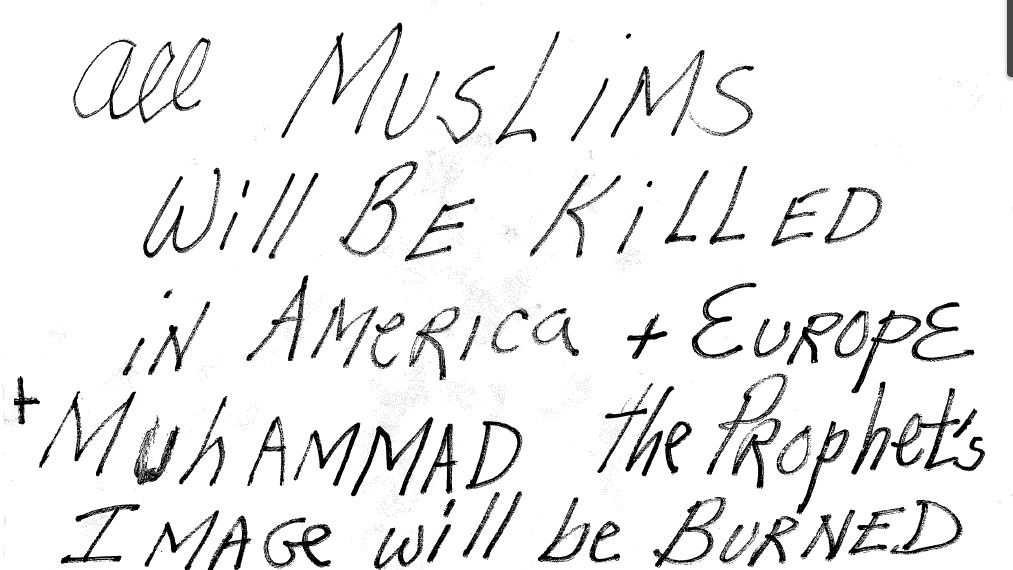 all MUSLiMS
Will BE KiLLED
iN AMeRica + EUROPE
+ MuhAMMAD the PRophet's
IMAGe will be BURNED